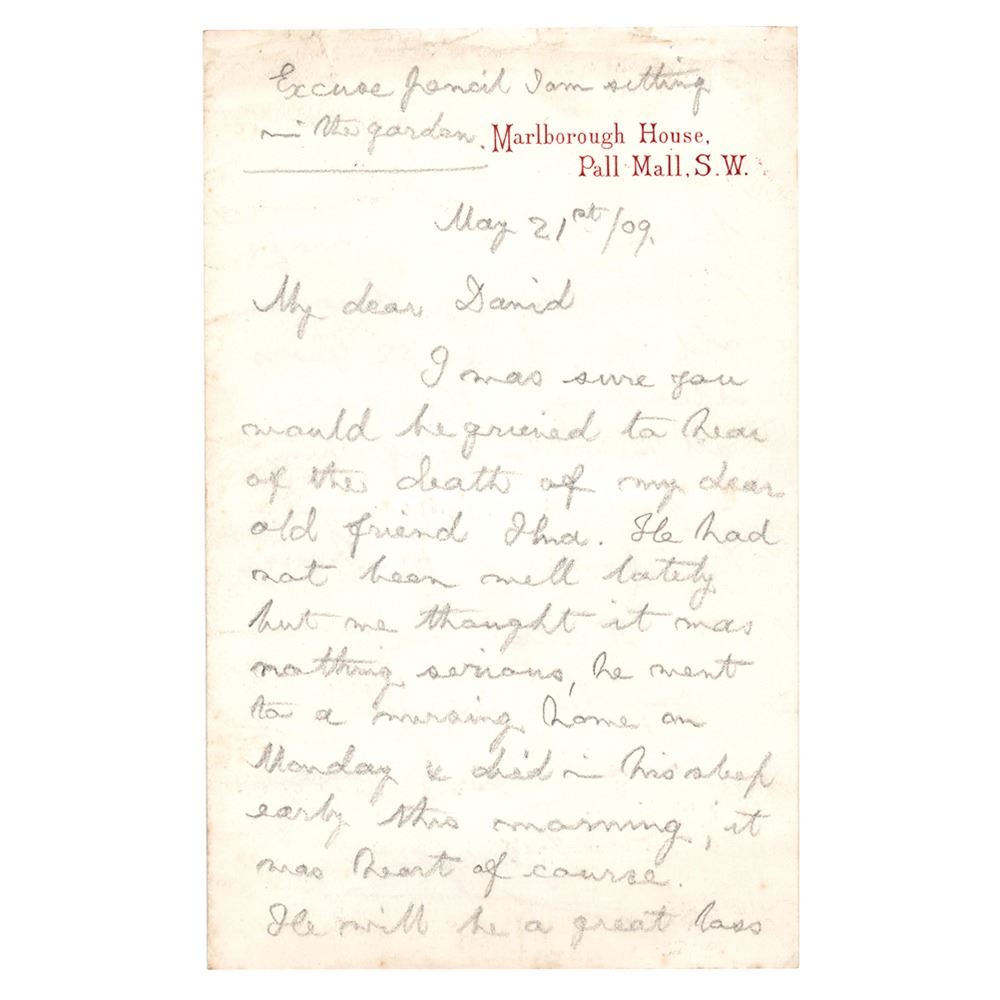 Excuse pencil I am sitting
in the garden.
Marlborough House,
Pall Mall, S.W.
May 21st/09.
My dear David
I was sure you
would be grieved to hear
of the death of my dear
old friend . He had
not been well lately
but we thought it was
nothing serious, he went
to a nursing home on
Monday & died in his sleep
early this morning, it
was heart of course.
He will be a great loss